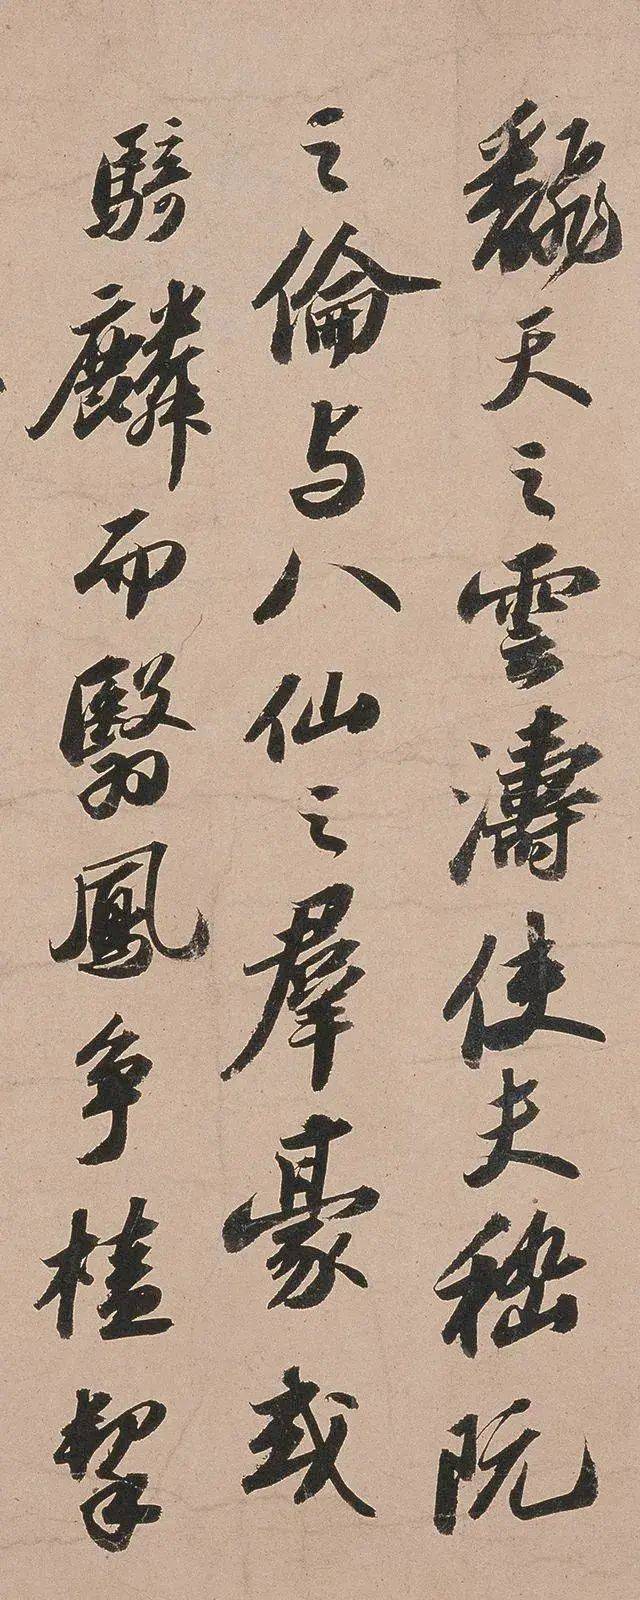 翻天之雲濤使夫嵇阮
之倫与八仙之羣豪或
騎麟而翳鳳争榼挈